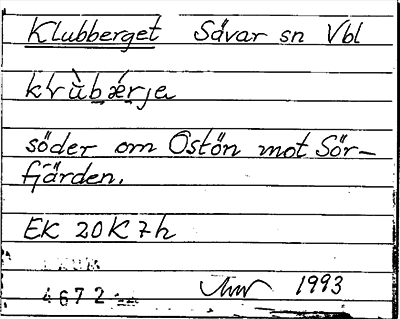 Klubberget Sävar sn Vbl
söder om Ostön mot Sör-
fjärden.
EK 20K 7h
4672
1993